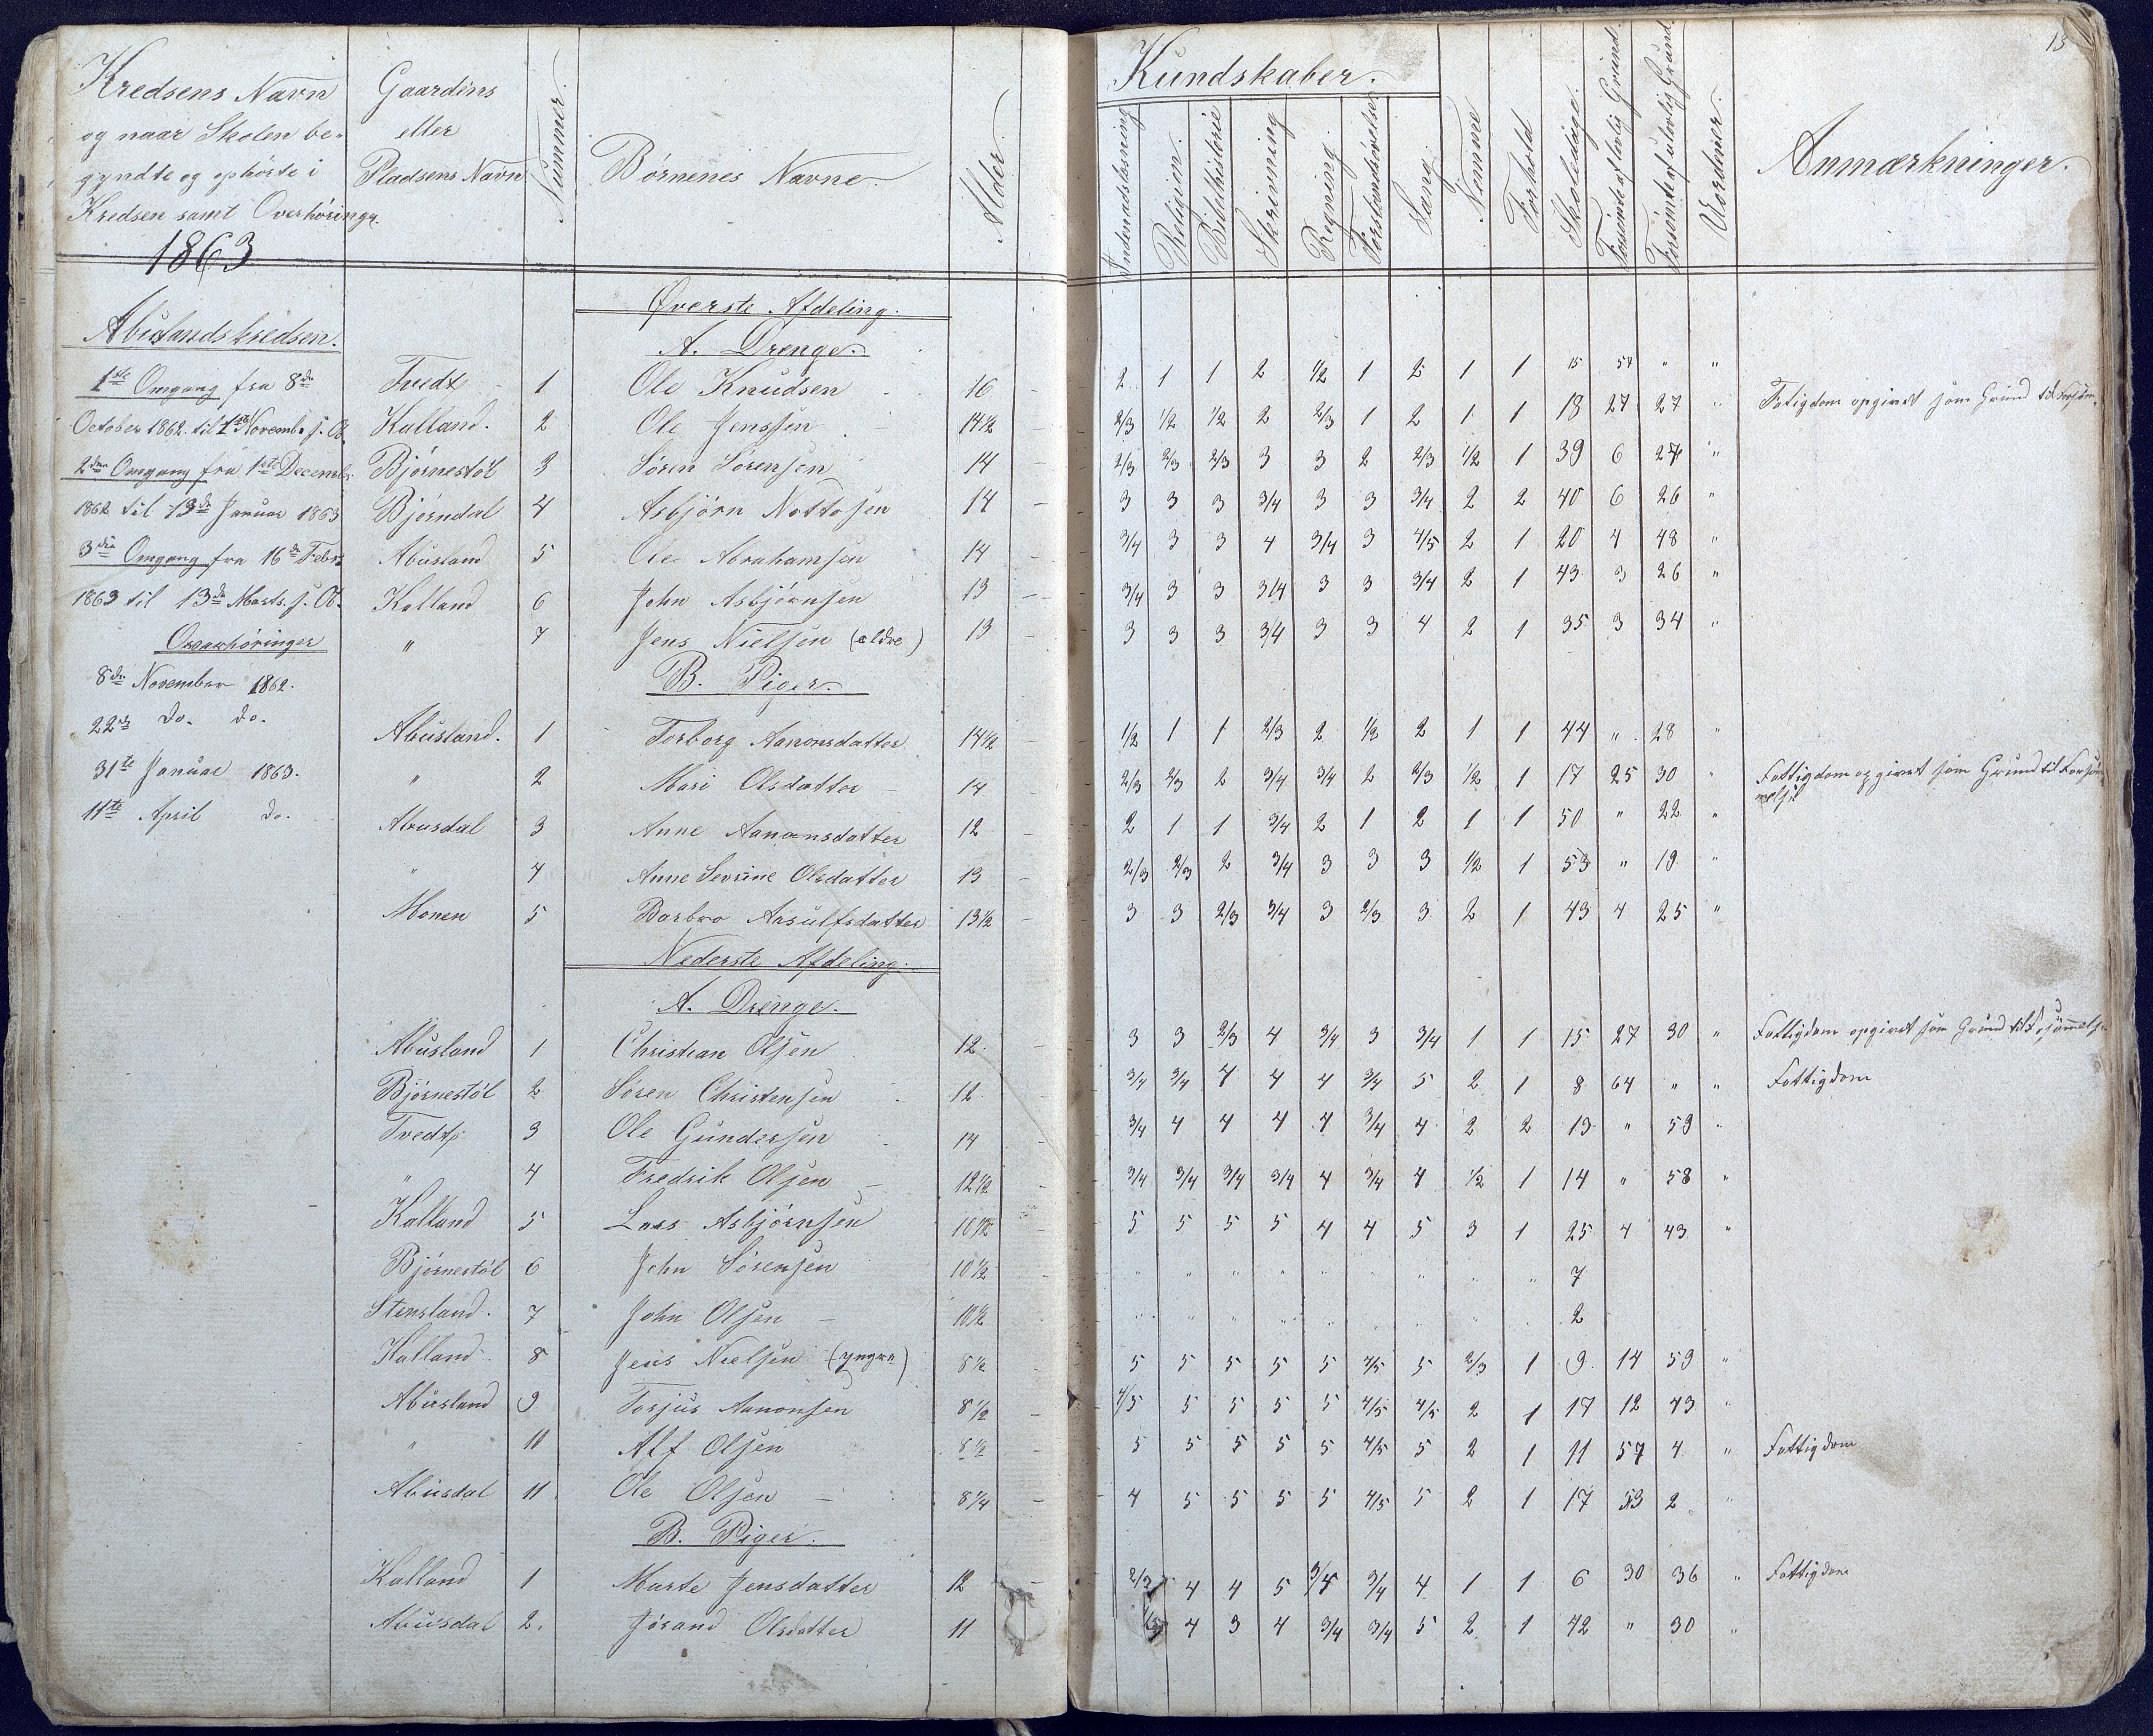 15
Kredsens Navn
og naar Skolen be-
gyndte og ophørte i
Kredsen samt Overhøringr.
1863
Gaardens
eller
Pladsens Navn
Nummer.
Børnenes Navne.
Alder.
Kundskaber.
Indenadslæsning
Religion.
Bibelhistorie
Skrivning
Regning
Forstandsøvelse
Sang.
Nemme
Forhold
Skoledage.
Forsømte af lovlig Grund.
Forsømte af ulovlig Grund.
Uordener.
Anmærkninger.
Abuslandskredsen.
1ste Omgang fra 8de
October 1862 til 1ste Novembr s. A.
2den Omgang fra 1ste Decembr
1862 til 13de Januar 1863
3die Omgang fra 16de Febr.
1863 til 13de Marts. s. A.
Overhøringer
8de November 1862.
22de do. do.
31te Januar 1863.
11te April do.
Øverste Afdeling.
A. Drenge.
Tvedt 1 Ole Knudsen 16 2 1 1 2 1/2 1 2 1 1 15 57 " "
Kalland. 2 Ole Jenssen 14 1/2 2/3 1/2 1/2 2 2/3 1 2 1 1 18 27 27 " Fatigdom opgivet som Grund til Forsøm.
Bjørnestøl 3 Søren Sørensen 14 2/3 2/3 2/3 3 3 2 2/3 1/2 1 39 6 27 "
Bjørndal 4 Asbjørn Nottosen 14 3 3 3 3/4 3 3 3/4 2 2 40 6 26 "
Abusland 5 Ole Abrahamsen 14 3/4 3 3 4 3/4 3 4/5 2 1 20 4 48 "
Kalland 6 John Asbjørnsen 13 3/4 3 3 3/4 3 3 3/4 2 1 43 3 26 "
" 7 Jens Nielsen (ældre) 13 3 3 3 3/4 3 3 4 2 1 35 3 34 "
B. Piger.
Abusland. 1 Torborg Aanonsdatter 14 1/2 1/2 1 1 2/3 2 1/2 2 1 1 44 " 28 "
" 2 Mari Olsdatter 14 2/3 2/3 2 3/4 3/4 2 2/3 1/2 1 17 25 30 " Fattigdom opgivet som Grund til Forsøm
melse
Abusdal 3 Anne Aanonsdatter 12 2 1 1 3/4 2 1 2 1 1 50 " 22 "
" 4 Anne Sevrine Olsdatter 13 2/3 2/3 2 3/4 3 3 3 1/2 1 53 " 19 "
Monen 5 Barbro Aasulfsdatter 13 1/2 3 3 2/3 3/4 3 2/3 3 2 1 43 4 25 "
Nederste Afdeling.
A. Drenge.
Abusland 1 Christian Olsen 12 3 3 2/3 4 3/4 3 3/4 1 1 15 27 30 " Fattigdom opgivet som Grund til Forsømmelse
Bjørnestøl 2 Søren Christensen 12 3/4 3/4 4 4 4 3/4 5 2 1 8 64 " " Fattigdom
Tvedt 3 Ole Gundersen 14 3/4 4 4 4 4 3/4 4 2 2 13 " 59 "
" 4 Fredrik Olsen 12 1/2 3/4 3/4 3/4 3/4 4 3/4 4 1/2 1 14 " 58 "
Kalland 5 Lars Asbjørnsen 10 1/2 5 5 5 5 4 4 5 3 1 25 4 43 "
Bjørnestøl 6 John Sørensen 10 1/2 " " " " " " " " " 7
Stensland. 7 John Olsen 10 1/2 " " " " " " " " " 2
Kalland 8 Jens Nielsen (yngre) 8 1/2 5 5 5 5 5 4/5 5 2/3 1 9 14 59 "
Abusland 9 Torjus Aanonsen 8 1/2 4/5 5 5 5 5 4/5 4/5 2 1 17 12 43 "
" 10 Alf Olsen 8 1/2 5 5 5 5 5 4/5 5 2 1 11 57 4 " Fattigdom
Abusdal 11 Ole Olsen 8 1/4 4 5 5 5 5 4/5 5 2 1 17 53 2 "
B. Piger.
Kalland 1 Marte Jensdatter 12 2/3 4 4 5 3/4 3/4 4 1 1 6 30 36 " Fattigdom
Abusdal 2. Jørand Olsdatter 11 4 3 4 3/4 3/4 5 2 1 42 " 30 "